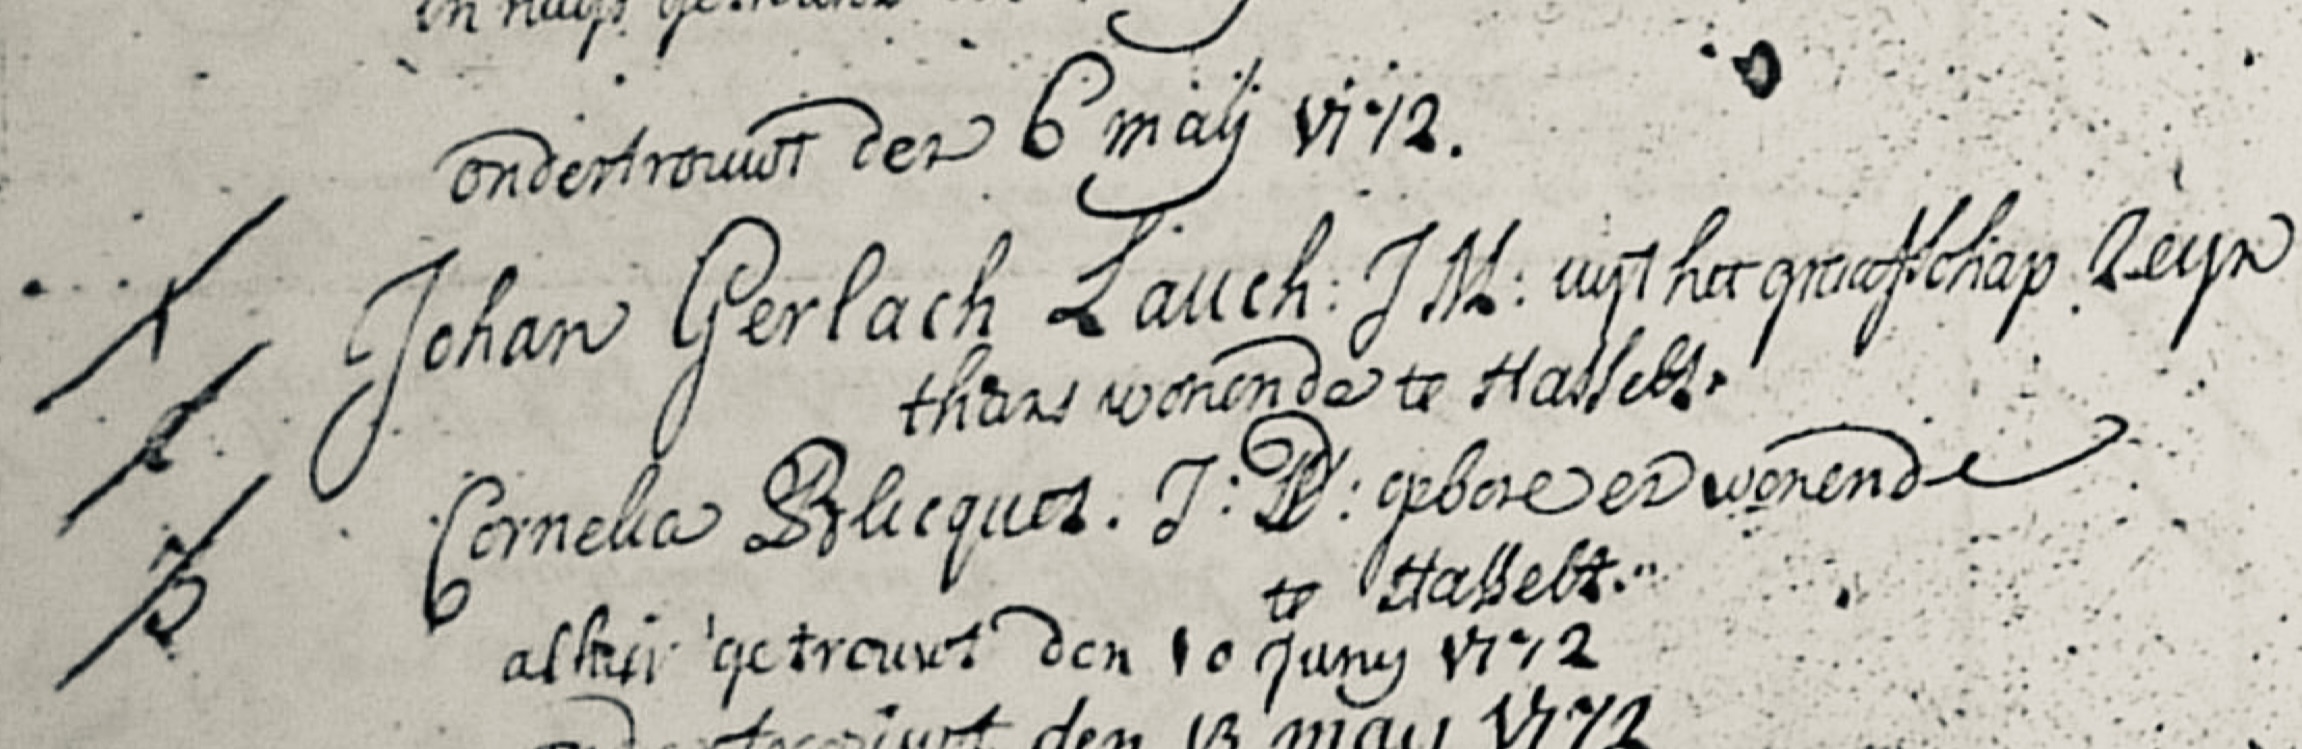 in huijs getrouwt
ondertrouwt den 6 maij 1772.
Johan Gerlach Lauch: J M: uijt het graafschap Zeyn
thans wonende te Hasselt.
1
2
3
Cornelia Blicquet. J: D: gebore en wonende
te Hasselt.
alhier getrouwt den 10 Juny 1772
ondertrouwt den 13 may 1772